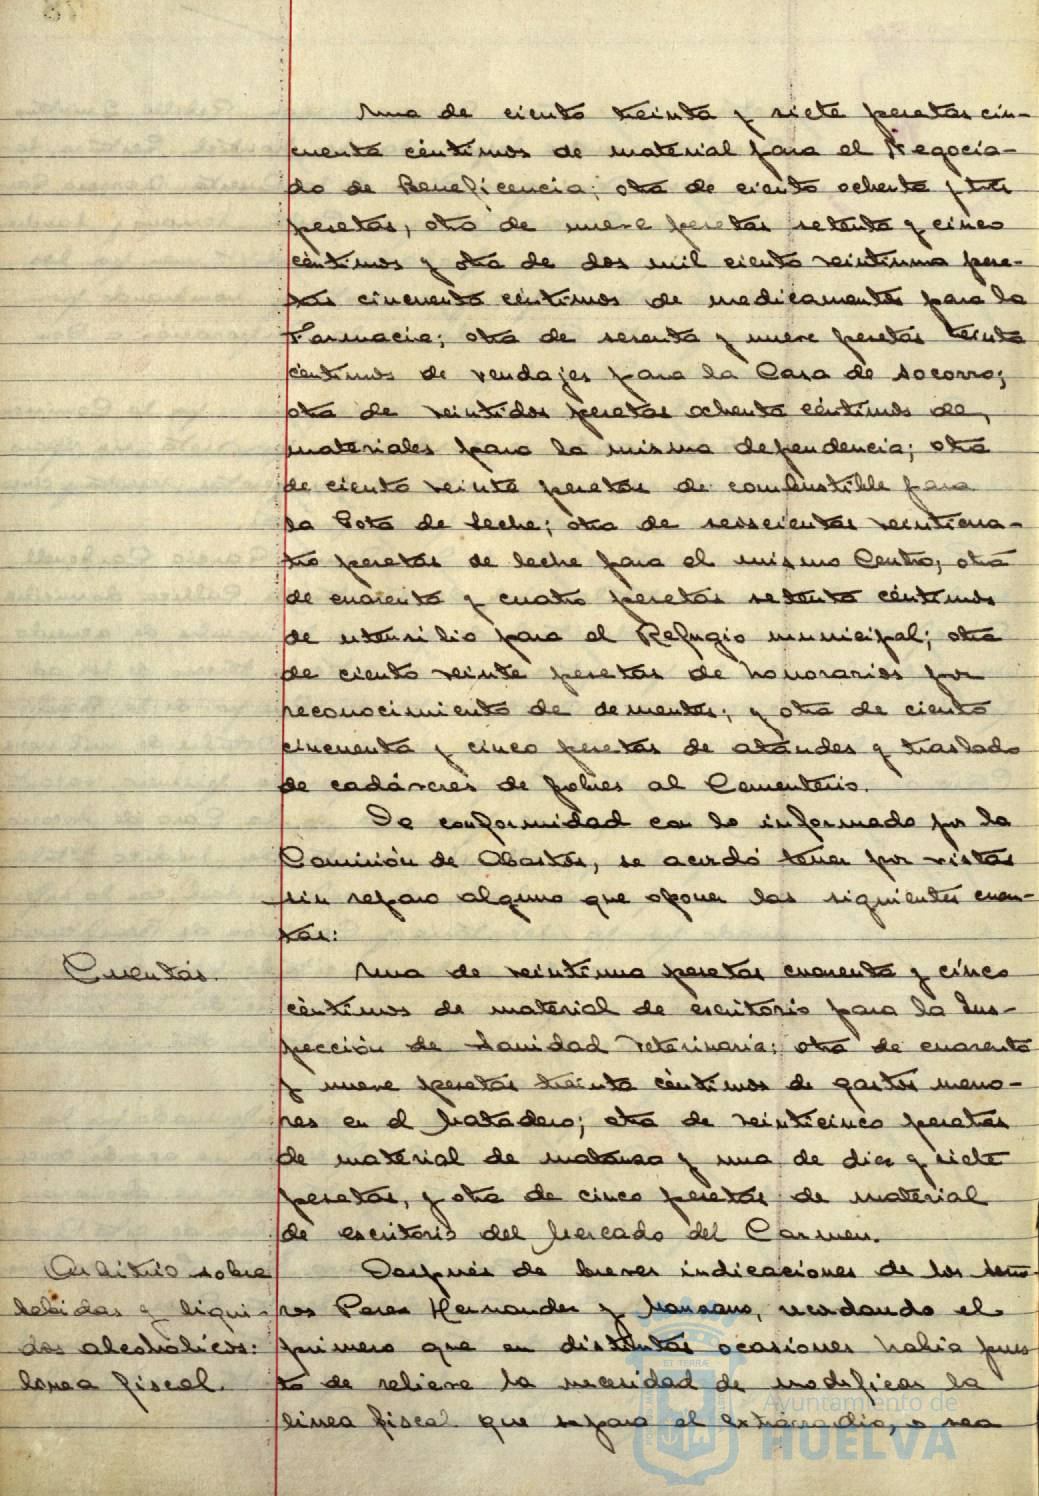 Una de ciento treinta y siete pesetas cin-
cuenta céntimos de material para el Negocia-
do de Beneficencia; otra de ciento ochenta y tres
pesetas, otra de nueve pesetas setenta y cinco
céntimos y otra de dos mil ciento veintiuna pese-
tas cincuenta céntimos de medicamentos para la
Farmacia; otra de sesenta y nueve pesetas treinta
céntimos de vendajes para la Casa de Socorro;
otra de veintidos pesetas ochenta céntimos de
materiales para la misma dependencia; otra
de ciento veinte pesetas de combustible para
la Gota de leche; otra de seiscientas veinticua-
tro pesetas de leche para el mismo Centro; otra
de cuarenta y cuatro pesetas setenta céntimos
de utensilio para el Refugio municipal; otra
de ciento veinte pesetas de honorarios por
reconocimiento de dementes; y otra de ciento
cincuenta y cinco pesetas de ataudes y traslado
de cadáveres de pobres al Cementerio.
De conformidad con lo informado por la
Comisión de Abastos, se acordó tener por vistas
sin reparo alguno que oponer las siguientes cuen-
tas:
Cuentas.
Una de veintiuna pesetas cuarenta y cinco
céntimos de material de escritorio para la Ins-
pección de Sanidad Veterinaria; otra de cuarenta
y nueve pesetas treinta céntimos de gastos meno-
res en el Matadero; otra de veinticinco pesetas
de material de matanza y una de diez y siete
pesetas, y otra de cinco pesetas de material
de escritorio del Mercado del Carmen.
Arbitrio sobre
bebidas y líqui-
dos alcohólicos:
línea fiscal.
Después de breves indicaciones de los seño-
res Peres Hernandez y Manzano, recordando el
primero que en distintas ocasiones habia pues
to de relieve la necesidad de modificar la
línea fiscal que separa el extrarradio, o sea
Ayuntamiento de
HUELVA